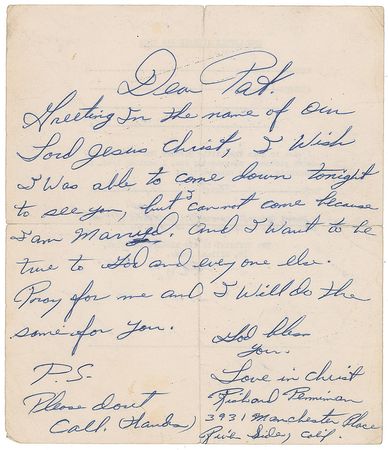 Dear Pat.
Greeting In the name of our
Lord Jesus Christ, I Wish
I Was able to come down tonight
to see you, but I cannot come because
I am Maryed. and I Want to be
true to God and everyone else.
Pray for me and I Will do the
same for you.
God bless
you.
Love in Christ
Richard Penniman
3931 Manchester Place
River Side, Calif.
P.S.
Please don't
Call. (Hands)